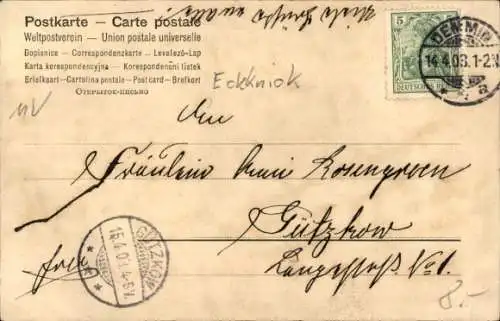 Postkarte – Carte postale
Weltpostverein – Union postale universelle
Dopisnice – Correspondenzkarte – Levelező-Lap
Karta korespondencyjna – Korespondenční lístek
Brefkaart – Cartolina postale – Postcard – Brefkort
Открытое письмо
Eckknick
5
DEUTSCHES REICH
DEMMIN
14.4.03.1-2N.
a
An
Fräulein Anni Rosengreen
Gützkow
Langestraß No 1.
frei
GÜTZKOW
15.4.03.4-5V.
8.-